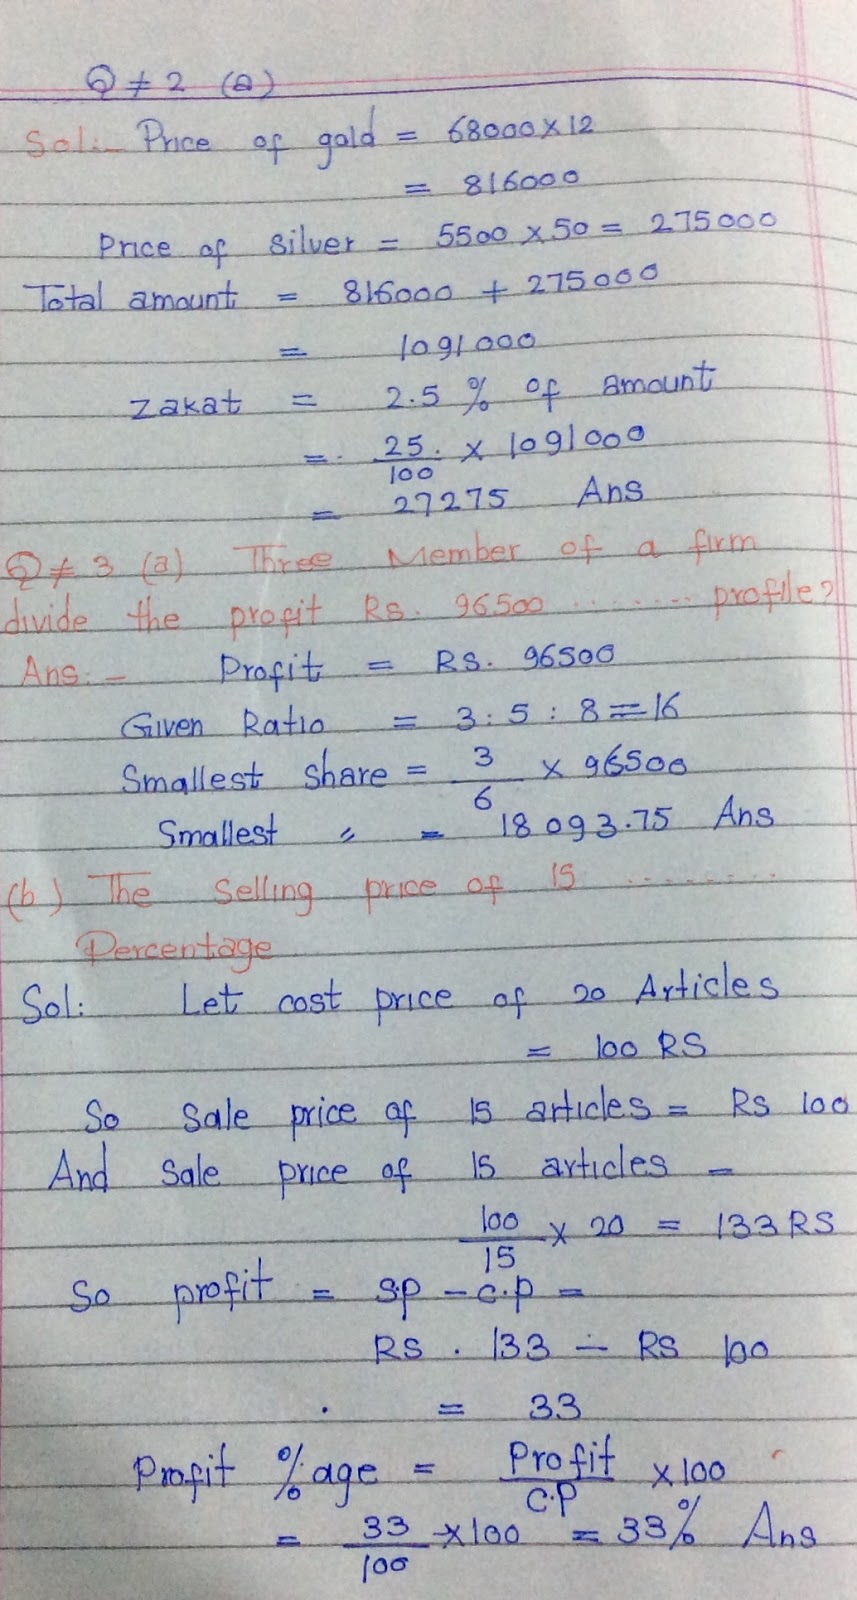 Q # 2 (a)
Sol:- Price of gold = 68000 x 12
= 816000
Price of silver = 5500 x 50 = 275000
Total amount = 816000 + 275000
= 1091000
Zakat = 2.5 % of amount
= 25. x 1091000
100
= 27275 Ans
Q # 3 (a) Three Member of a firm
divide the profit Rs. 96500 ........ profile?
Ans:- Profit = RS. 96500
Given Ratio = 3 : 5 : 8 = 16
Smallest share = 3 x 96500
6
Smallest 〃 = 18093.75 Ans
(b) The Selling price of 15 .........
Percentage
Sol: Let cost price of 20 Articles
= 100 RS
So Sale price of 15 articles = Rs 100
And Sale price of 15 articles =
100 x 20 = 133 RS
15
So profit = S.P - C.P =
RS . 133 - RS 100
= 33
Profit %age = Profit x 100
C.P
= 33 x 100 = 33% Ans
100